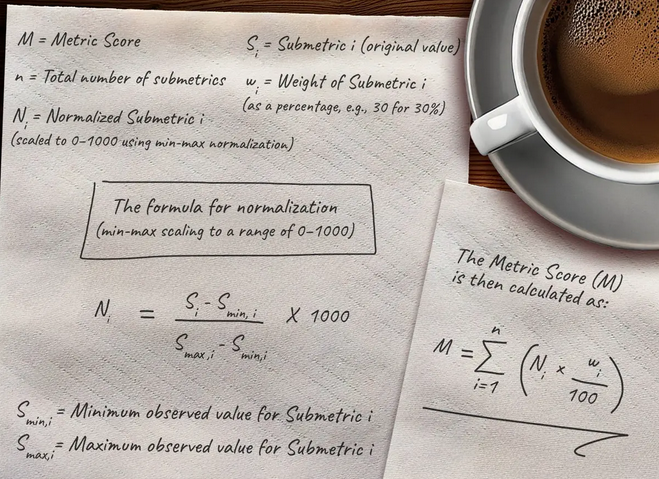 M = Metric Score
S_i = Submetric i (original value)
n = Total number of submetrics
w_i = Weight of Submetric i
(as a percentage, e.g., 30 for 30%)
N_i = Normalized Submetric i
(scaled to 0-1000 using min-max normalization)
The formula for normalization
(min-max scaling to a range of 0-1000)
N_i = (S_i - S_min, i) / (S_max,i - S_min,i) X 1000
S_min,i = Minimum observed value for Submetric i
S_max,i = Maximum observed value for Submetric i
The Metric Score (M)
is then calculated as:
M = ∑_{i=1}^{n} (N_i × w_i / 100)